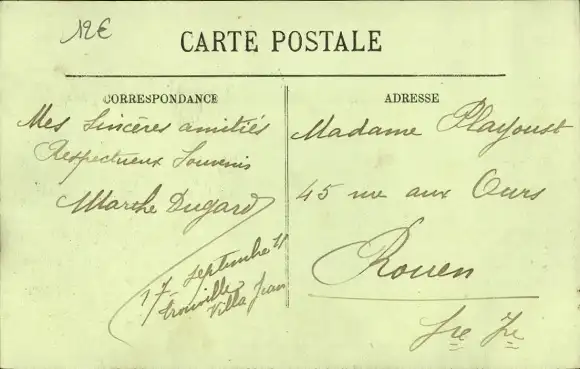 12€
CARTE POSTALE
CORRESPONDANCE
Mes Sincères amitiés
Respectueux Souvenirs
Marthe Dugard
17 Septembre
trouville
Villa Jean
ADRESSE
Madame Playoust
45 rue aux Ours
Rouen
Sre Ire